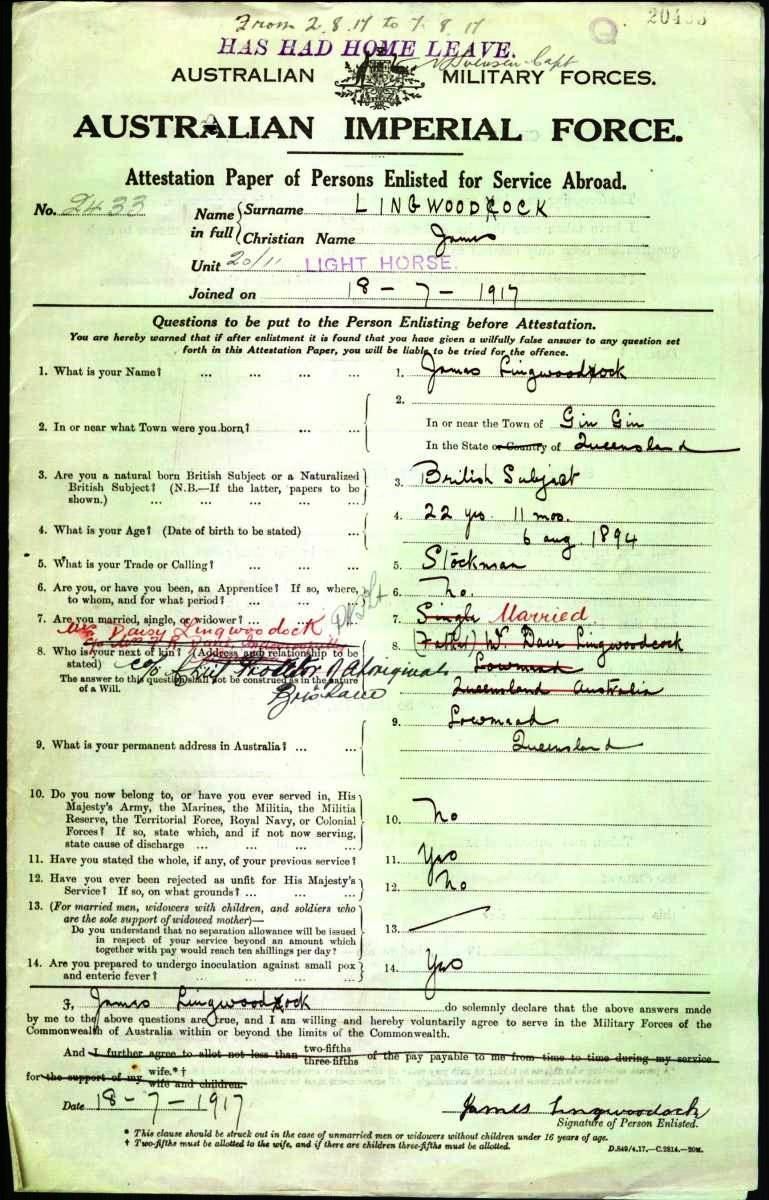 From 2.8.17 to 7.8.17
HAS HAD HOME LEAVE.
Capt
AUSTRALIAN MILITARY FORCES.
AUSTRALIAN IMPERIAL FORCE.
Attestation Paper of Persons Enlisted for Service Abroad.
No. 2433
Name in full { Surname LINGWOODCOCK
Christian Name James
Unit 20/11 LIGHT HORSE.
Joined on 18-7-1917
Questions to be put to the Person Enlisting before Attestation.
You are hereby warned that if after enlistment it is found that you have given a wilfully false answer to any question set
forth in this Attestation Paper, you will be liable to be tried for the offence.
1. What is your Name? ... ... ... ... 1. James Lingwoodcock
2. In or near what Town were you born? ... ... 2. In or near the Town of Gin Gin
In the State or Country of Queensland
3. Are you a natural born British Subject or a Naturalized
British Subject? (N.B.—If the latter, papers to be
shown.) ... ... ... ... ... 3. British Subject
4. What is your Age? (Date of birth to be stated) ... 4. 22 yrs. 11 mos.
6 Aug. 1894
5. What is your Trade or Calling? ... ... ... 5. Stockman
6. Are you, or have you been, an Apprentice? If so, where,
to whom, and for what period? ... ... ... 6. No.
7. Are you married, single, or widower? ... ... 7. Single Married
Mrs Daisy Lingwoodock
8. Who is your next of kin? (Address and relationship to be
stated) 8. (Father) Mr Dave Lingwoodcock
Lowmead
Queensland Australia
c/o Chief Protector of Aboriginals
Brisbane
The answer to this question shall not be construed as in the nature
of a Will.
9. What is your permanent address in Australia? ... ... 9. Lowmead
Queensland
10. Do you now belong to, or have you ever served in, His
Majesty's Army, the Marines, the Militia, the Militia
Reserve, the Territorial Force, Royal Navy, or Colonial
Forces? If so, state which, and if not now serving,
state cause of discharge ... ... ... ... 10. No
11. Have you stated the whole, if any, of your previous service? 11. Yes
12. Have you ever been rejected as unfit for His Majesty's
Service? If so, on what grounds? ... ... ... 12. No
13. (For married men, widowers with children, and soldiers who
are the sole support of widowed mother)—
Do you understand that no separation allowance will be issued
in respect of your service beyond an amount which
together with pay would reach ten shillings per day? 13.
14. Are you prepared to undergo inoculation against small pox
and enteric fever? ... ... ... ... 14. Yes
I, James Lingwoodcock do solemnly declare that the above answers made
by me to the above questions are true, and I am willing and hereby voluntarily agree to serve in the Military Forces of the
Commonwealth of Australia within or beyond the limits of the Commonwealth.
And I further agree to allot not less than two-fifths three-fifths of the pay payable to me from time to time during my service
for the support of my wife.* † wife and children.
Date 18-7-1917 James Lingwoodcock
Signature of Person Enlisted.
* This clause should be struck out in the case of unmarried men or widowers without children under 16 years of age.
† Two-fifths must be allotted to the wife, and if there are children three-fifths must be allotted.
D.849/4.17.—C.2814.—20M.